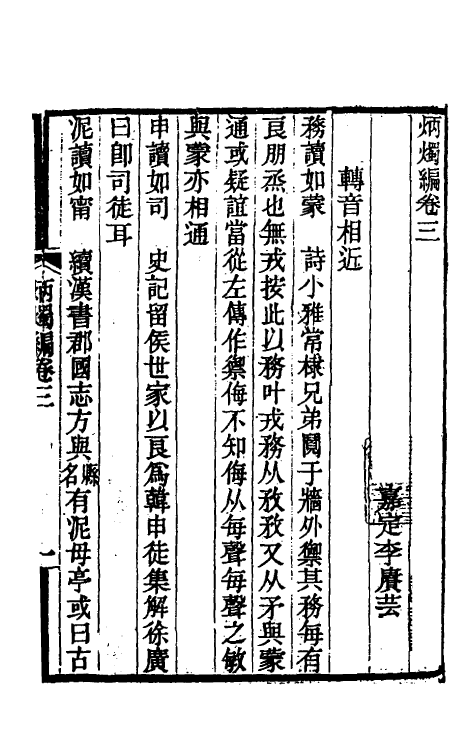 炳燭編卷三
嘉定李賡芸
轉音相近
務讀如蒙　詩小雅常棣兄弟鬩于牆外禦其務每有
良朋烝也無戎按此以務叶戎務从敄敄又从矛與蒙
通或疑誼當從左傳作禦侮不知侮从每聲每聲之敏
與蒙亦相通
申讀如司　史記留侯世家以良爲韓申徒集解徐廣
曰卽司徒耳
泥讀如甯　續漢書郡國志方與縣名有泥母亭或曰古
炳燭編卷三
一